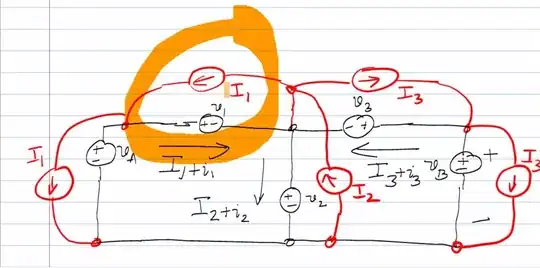 I₁
I₃
v₁
v₃
I₁
v_A
I₁+i₁
I₃+i₃
v_B
+
I₃
I₂+i₂
v₂
I₂
−